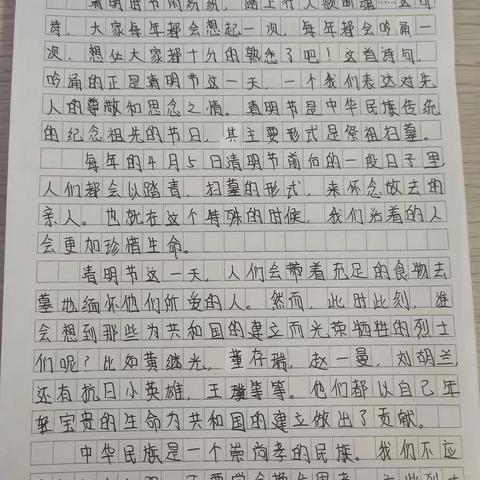 清明时节雨纷纷，路上行人欲断魂……这句
诗，大家每年都会想起一次，每年都会吟涌一
次，想必大家都十分的熟悉了吧！这首诗句，
吟涌的正是清明节这一天，一个我们表达对先
人的尊敬和思念之情。清明节是中华民族传统
的纪念祖先的节日，其主要形式是祭祖扫墓。
每年的4月5日清明节前后的一段日子里，
人们都会以踏青，扫墓的形式，来怀念故去的
亲人。也就在这个特殊的时候，我们活着的人
会更加珍惜生命。
清明节这一天，人们会带着充足的食物去
墓地缅怀他们所爱的人。然而，此时此刻，谁
会想到那些为共和国的建立而光荣牺牲的烈士
们呢？比如黄继光，董存瑞，赵一曼，刘胡兰，
还有抗日小英雄，王璞等等。他们都以自己年
轻宝贵的生命为共和国的建立做出了贡献。
中华民族是一个崇尚孝的民族。我们不应